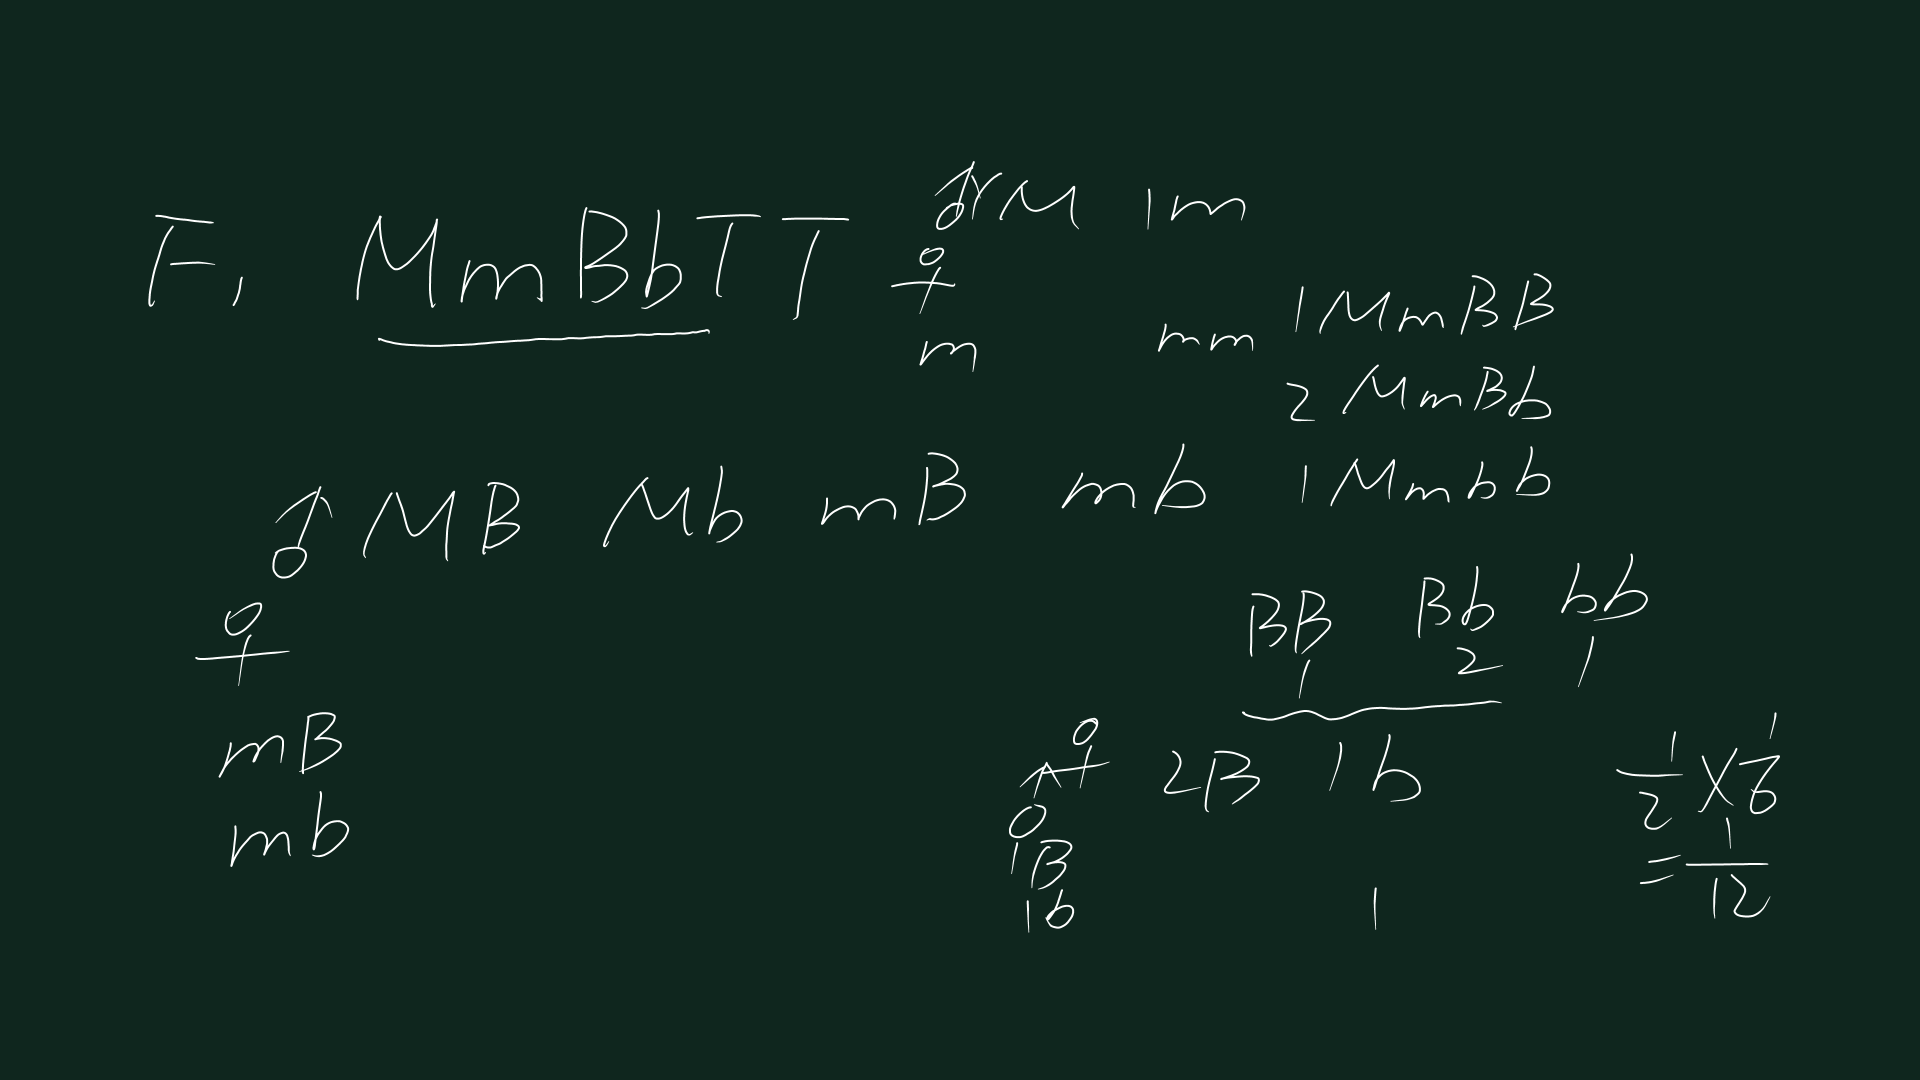 F₁ MmBbTT
♂ 1M 1m
♀
m mm
1MmBB
2MmBb
1Mmbb
♂ MB Mb mB mb
♀
mB
mb
BB Bb bb
1 2 1
♀ 2B 1b
♂
1B
1b 1
1/2 × 1/6
= 1/12